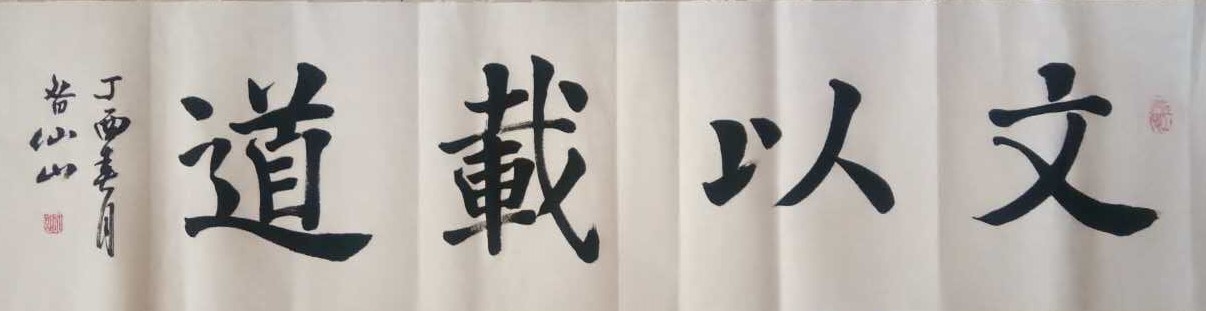 文以載道
丁酉春月
昝仙山